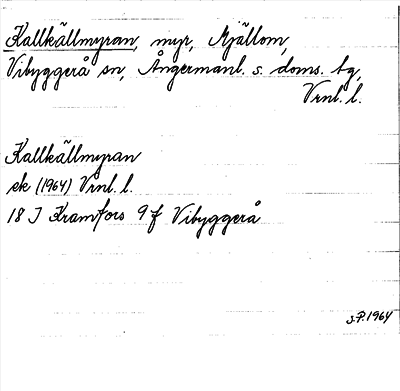 Kallkällmyran, myr, Mjällom,
Vibyggerå sn, Ångermanl. s. doms. tg,
Vrnl. l.
Kallkällmyran
ek (1964) Vrnl. l.
18 J Kramfors 9 f Vibyggerå
S.P. 1964